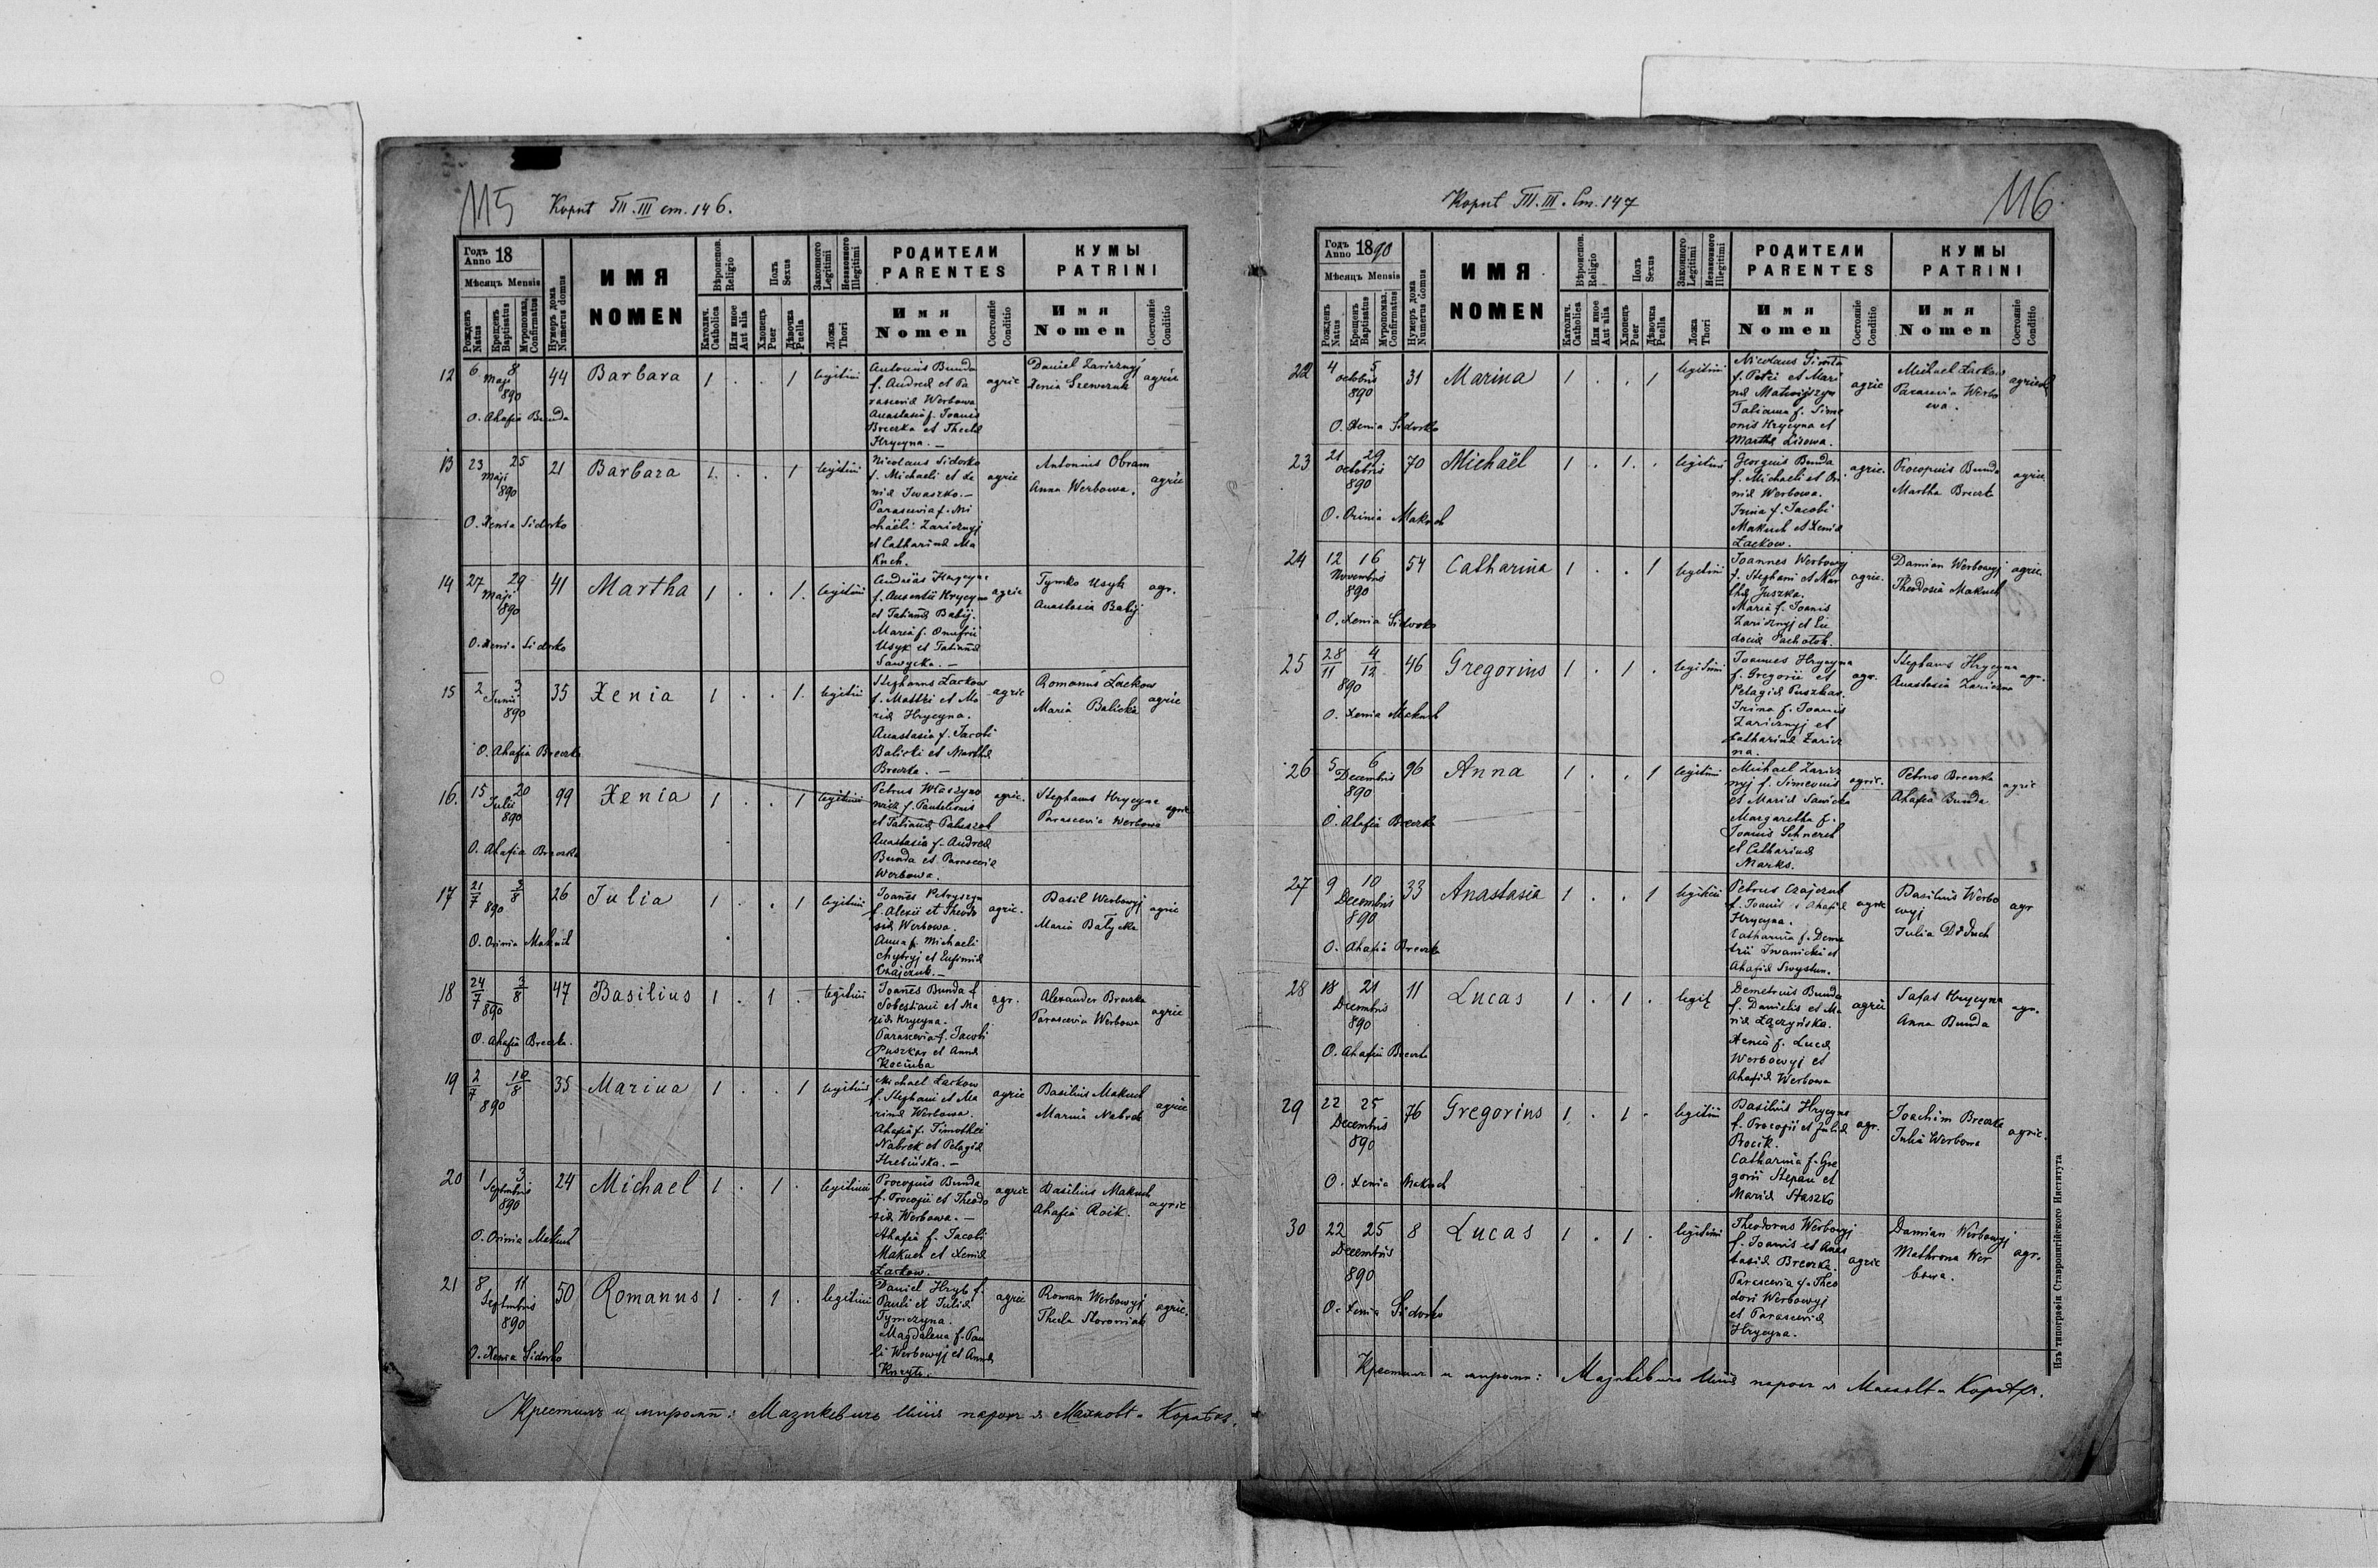 115
Корнѣ ТП. III ст. 146.
Годъ Anno 18
Мѣсяцъ Mensis
Рожденъ Natus
Крещенъ Baptisatus
Мѵропомаз. Confirmatus
Нумеръ дома Numerus domus
ИМЯ
NOMEN
Вѣроиспов. Religio
Католич. Catholica
Или иное Aut alia
Полъ Sexus
Хлопецъ Puer
Дѣвочка Puella
Законного Legitimi
Незаконного Illegitimi
Ложа Thori
РОДИТЕЛИ
PARENTES
Имя
Nomen
Состояніе Conditio
КУМЫ
PATRINI
Имя
Nomen
Состояніе Conditio
12 6 8 Maji 890 44 Barbara 1 . . 1 legitimi
Antonius Bunda
f. Andreä et Pa
rasceviä Werbowa
Anastasia f. Joannis
Breczka et Theclä
Hrycyna. —
agric
Daniel Zaricznyj
Xenia Szewczuk
agric
O. Ahafia Bunda
13 23 25 Maji 890 21 Barbara 1 . . 1 legitimi
Nicolaus Sidorko
f. Michaeli et Xe
niä Iwaszko. —
Parascevia f. Mi
chaëli Zaricznyj
et Catharinä Ma
kuch.
agric
Antonius Obram
Anna Werbowa.
agric
O. Xenia Sidorko
14 27 29 Maji 890 41 Martha 1 . . 1. legitimi
Andreas Hrycyna
f. Auxentii Hrycyna
et Tatianä Babij.
Maria f. Onufrii
Usyk et Tatianä
Sawycka. —
agric
Tymko Usyk
Anastasia Babij
agr.
O. Xenia Sidorko
15 2 3 Junii 890 35 Xenia 1 . . 1. legitimi
Stephanus Lackow
f. Matthi et Ma
riä Hrycyna.
Anastasia f. Jacobi
Balicki et Marthä
Breczka. —
agric
Romanus Lackow
Maria Balicka
agric
O. Ahafia Breczka
16. 15 20 Julii 890 99 Xenia 1 . . 1 legitimi
Petrus Wlaszyno
wicz f. Panteleonis
et Tatianä
Anastasia f. Andreä
Bunda et Parasceviä
Werbowa.
agric.
Stephanus Hrycyna
Parascevia Werbowa
agric
O. Ahafia Breczka
17 21/7 3/8 890 26 Julia 1 . . 1 legitimi
Joannes Petryszyn
f. Alexii et Theodo
siä Werbowa.
Anna f. Michaeli
Chytryj et Eufimiä
Czajczuk. —
agric.
Basil Werbowyj
Maria Batycka
agric
O. Orinia Makuch
18 24/7 3/8 890 47 Basilius 1 . 1 . legitimi
Joannes Bunda f.
Sebestiani et Ma
riä Hrycyna.
Parascevia f. Jacobi
Puszkar et Annä
Kociuba
agr.
Alexander Breczka
Parascevia Werbowa
agric
O. Ahafia Breczka.
19 2/7 10/8 890 35 Marina 1 . . 1 legitimi
Michael Lackow
f. Stephani et Ma
rinä Werbowa.
Ahafia f. Timothei
Nabrek et Pelagiä
Hrebińska. —
agric
Basilius Makuch
Marina Nabrek
agric
20 1 3 Septembris 890 24 Michael 1 . 1 . legitimi
Procopius Bunda
f. Procopii et Theodo
siä Werbowa. —
Ahafia f. Jacobi
Makuch et Xeniä
Lackow.
agric
Basilius Makuch
Ahafia Roik.
agric
O. Orinia Makuch
21 8 11 Septembris 890 50 Romanus 1 . 1 . legitimi
Daniel Hryb f.
Pauli et Juliä
Tymczyna.
Magdalena f. Pau
li Werbowyj et Annä
agric
Roman Werbowyj
Thecla Storoniak
agric.
O. Xenia Sidorko
Крестилъ и миропом.: Мазикевичъ Илія парох я Махновѣ - Корнѣхъ.
116
Корнѣ ТП. III. Ст. 147
Годъ Anno 1890
Мѣсяцъ Mensis
Рожденъ Natus
Крещенъ Baptisatus
Мѵропомаз. Confirmatus
Нумеръ дома Numerus domus
ИМЯ
NOMEN
Вѣроиспов. Religio
Католич. Catholica
Или иное Aut alia
Полъ Sexus
Хлопецъ Puer
Дѣвочка Puella
Законного Legitimi
Незаконного Illegitimi
Ложа Thori
РОДИТЕЛИ
PARENTES
Имя
Nomen
Состояніе Conditio
КУМЫ
PATRINI
Имя
Nomen
Состояніе Conditio
22 4 5 Octobris 890 31 Marina 1 . . 1 legitimi
Nicolaus Gimta
f. Petri et Mari
nä Matwijszyn
Tatiana f. Sime
onis Hrycyna et
Marthä Lisowa.
agric
Michael Lackow
Parascevia Werbo
wa.
agricol
O. Xenia Sidorko
23 21 29 Octobris 890 70 Michaël 1 . 1. . legitimi
Georgius Bunda
f. Michaeli et Ori
niä Werbowa.
Irina f. Jacobi
Makuch et Xeniä
Lackow.
agric.
Procopius Bunda
Martha Breczk
agric
O. Orinia Makuch
24 12 16 Novembris 890 54 Catharina 1 . . 1 legitimi
Joannes Werbowyj
f. Stephani et Mar
thä Juszka.
Maria f. Joannis
Zariznyj et Eu
dociä Pachotok.
agric.
Damian Werbowyj
Theodosia Makuch
agric.
O. Xenia Sidorko
25 28/11 4/12 890 46 Gregorius 1 . 1 . legitimi
Joannes Hrycyna
f. Gregorii et
Pelagiä Puszkar.
Irina f. Joannis
Zariznyj et
Catharinä Zaricz
na.
agr.
Stephanus Hrycyna
Anastasia Zariczna
agr.
O. Xenia Makuch
26 5 6 Decembris 890 96 Anna 1 . . 1 legitimi
Michael Zaricz
nyj f. Simeonis
et Mariä Sawicka
Margaretha f.
Joannis Schnerch
et Catharinä
Marks.
agric.
Petrus Breczka
Ahafia Bunda
agric
O. Ahafia Breczka
27 9 10 Decembris 890 33 Anastasia 1 . . 1 legitimi
Petrus Czajczuk
f. Joanis et Ahafiä
Hrycyna.
Catharina f. Deme
trii Iwanicki et
Ahafiä Swystun.
agric
Basilius Werbo
wyj
Julia Diduch
agr
O. Ahafia Breczka
28 18 21 Decembris 890 11 Lucas 1 . 1 . legit
Demetrius Bunda
f. Danielis et Ma
riä Łączyńska.
Xenia f. Lucä
Werbowyj et
Ahafiä Werbowa
agric
Safat Hrycyna
Anna Bunda
agr.
O. Ahafia Breczka
29 22 25 Decembris 890 76 Gregorius 1 . 1 . legitimi
Basilius Hrycyna
f. Procopii et Juliä
Procik.
Catharina f. Gre
gorii Stepan et
Mariä Staszko
agr.
Joachim Breczka
Julia Werbowa
agric.
O. Xenia Makuch
30 22 25 Decembris 890 8 Lucas 1 . 1 . legitimi
Theodorus Werbowyj
f. Joannis et Anas
tasiä Breczka.
Parascevia f. Theo
dori Werbowyj
et Parasceviä
Hrycyna.
agric
Damian Werbowyj
Mathrona Wer
bowa.
agr.
O. Xenia Sidorko
Крестилъ и миропом.: Мазикевичъ Илія парох я Махновѣ - Корнѣхъ.
Изъ типографіи Ставропигійского Института